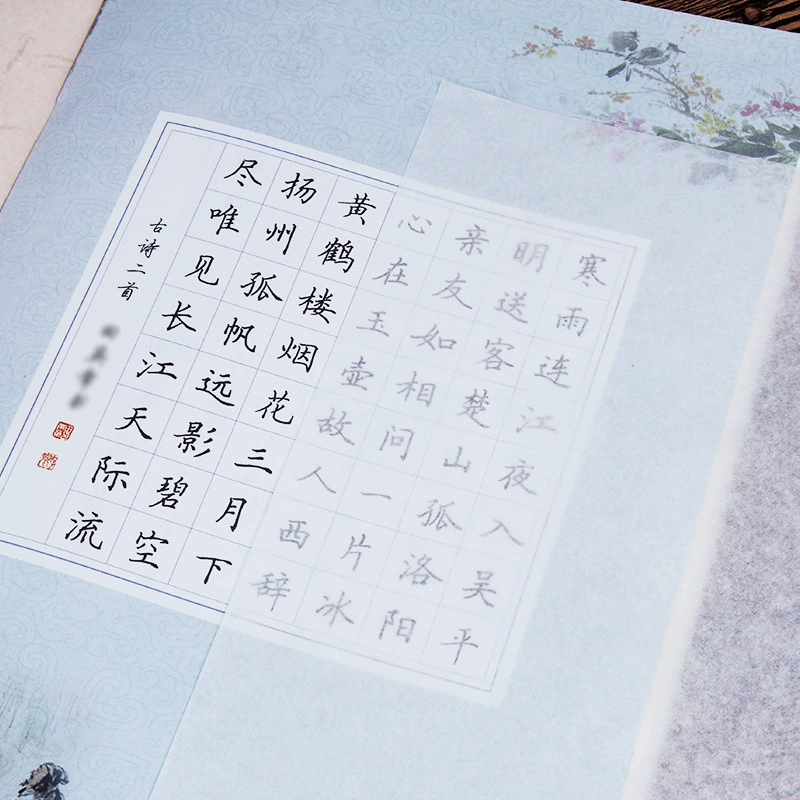 寒雨连江夜入吴平
明送客楚山孤洛阳
亲友如相问一片冰
心在玉壶故人西辞
黄鹤楼烟花三月下
扬州孤帆远影碧空
尽唯见长江天际流
古诗二首